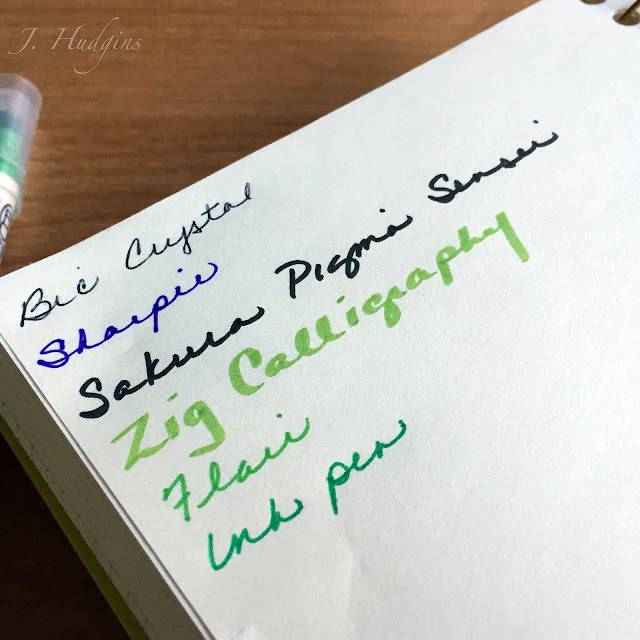 J. Hudgins
Bic Crystal
Sharpie
Sakura Pigma Sensei
Zig Calligraphy
Flair
Ink pen